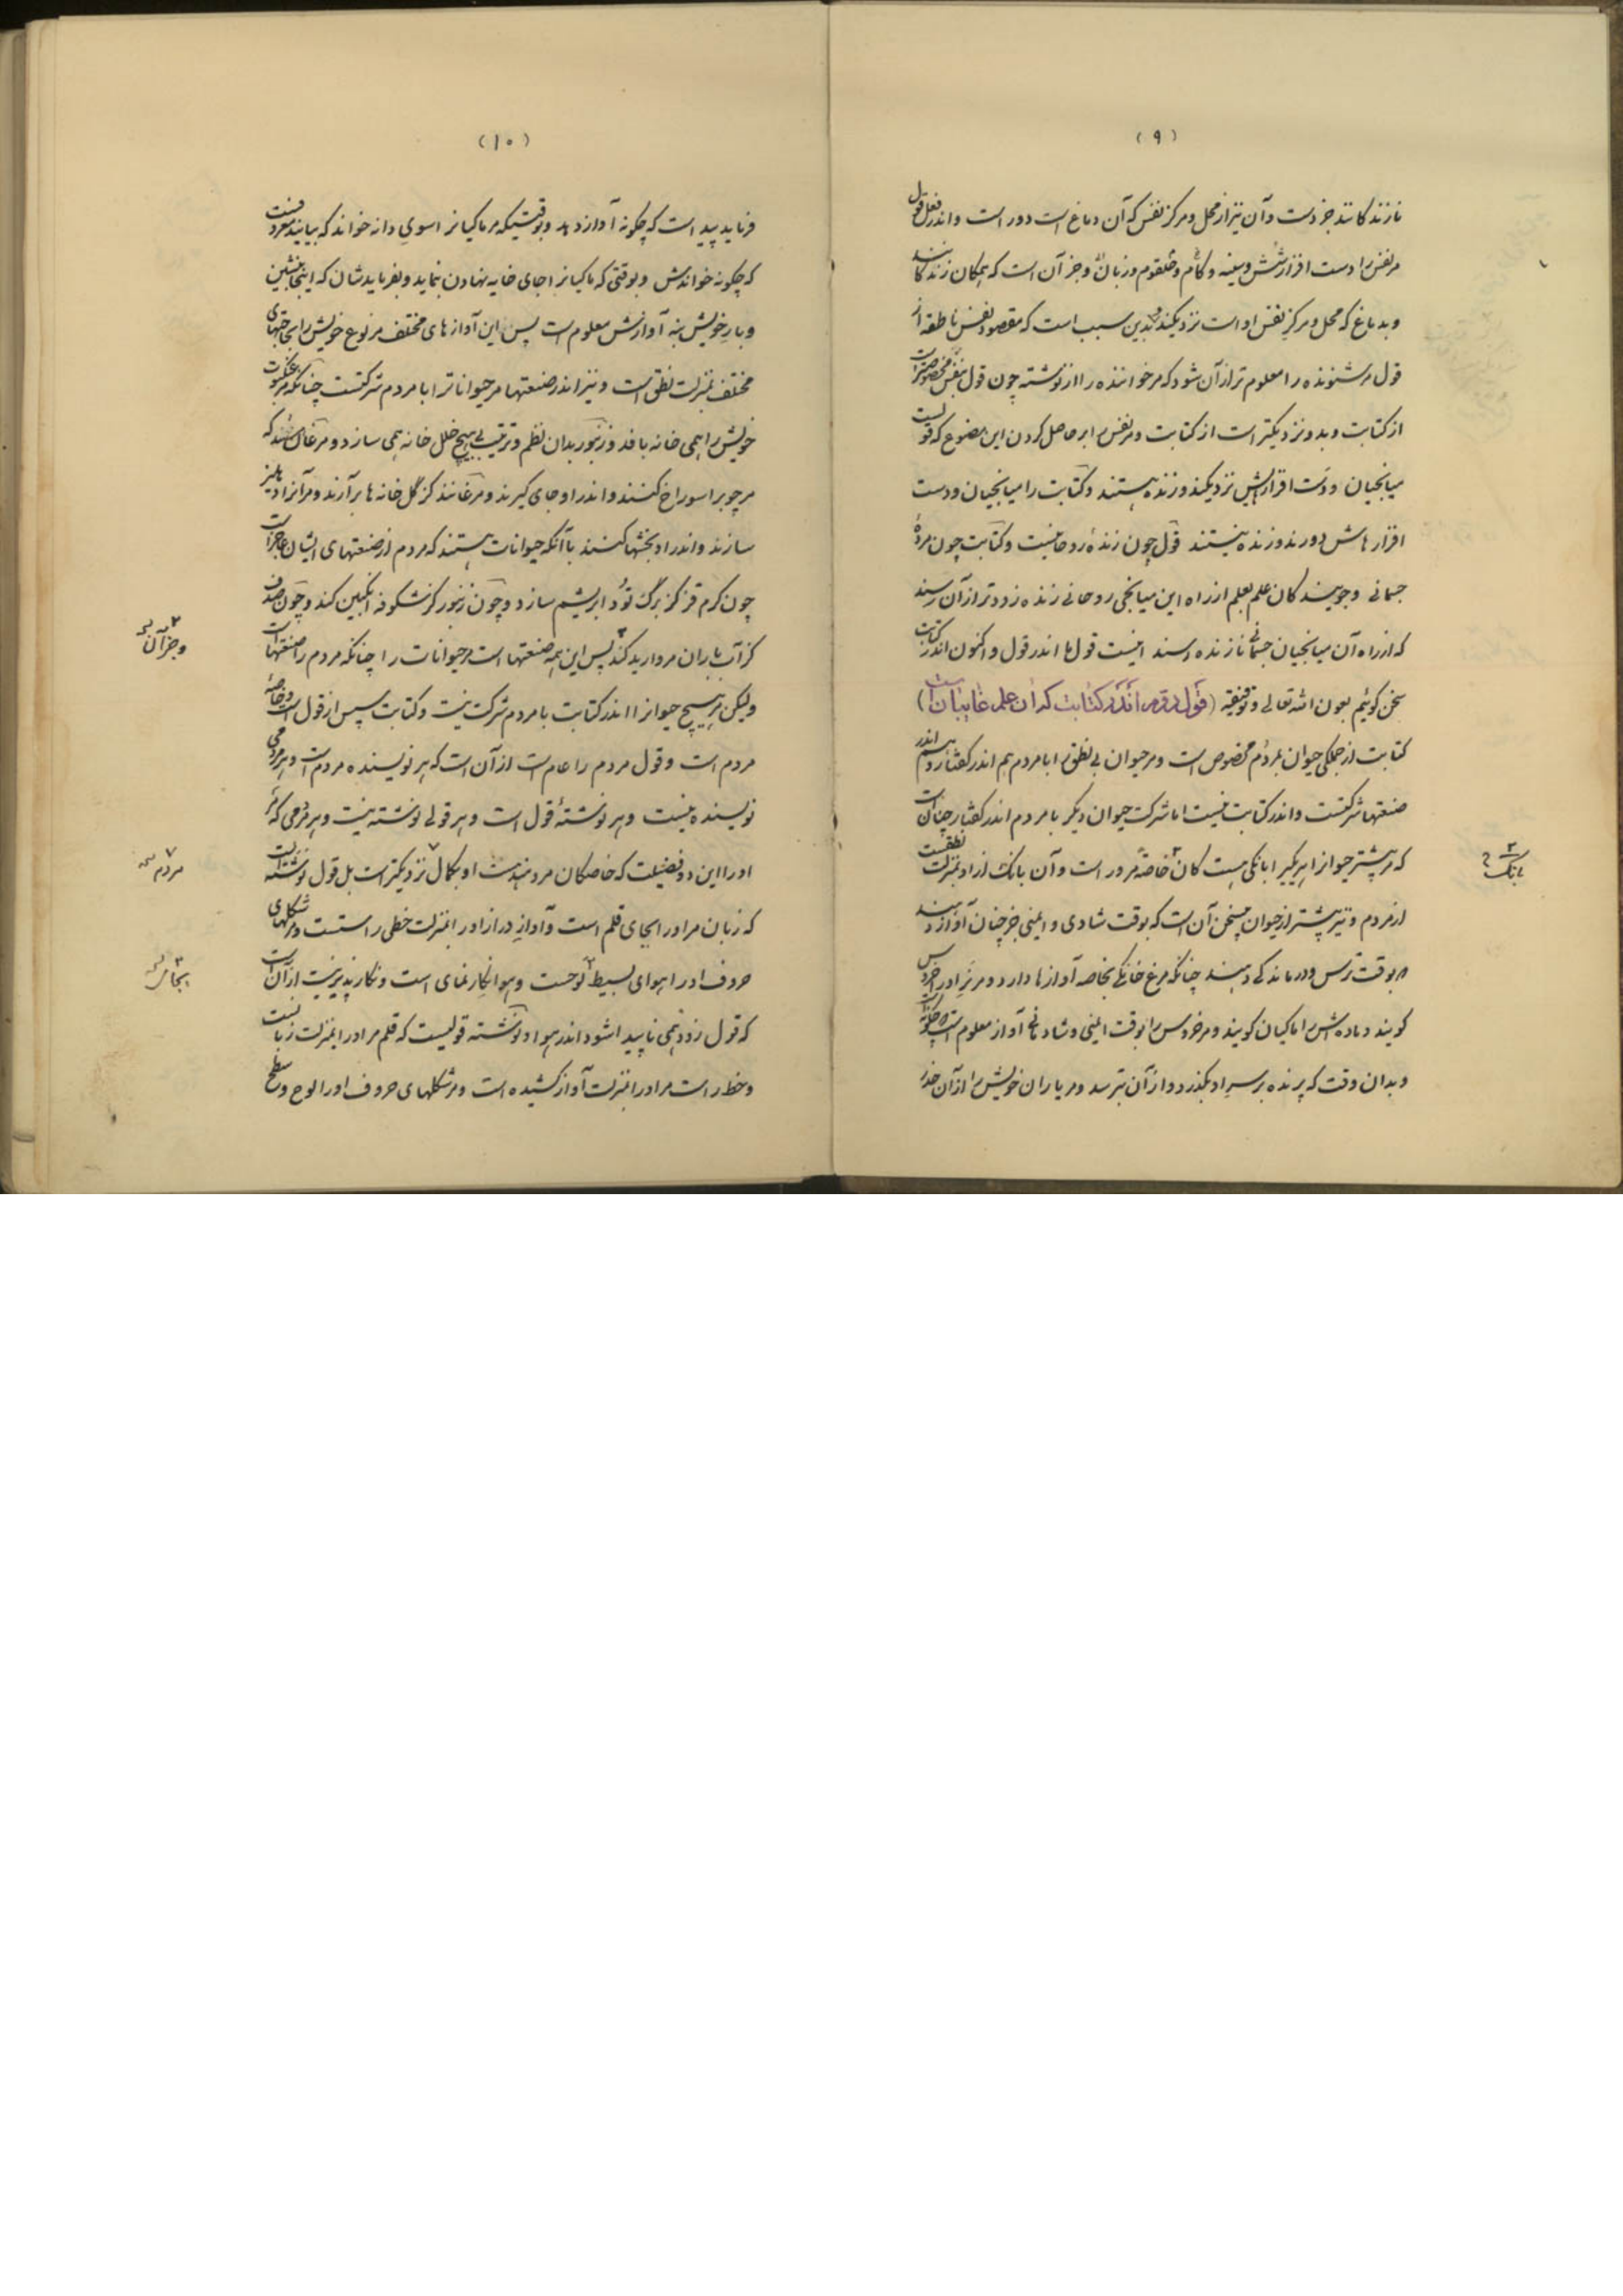 (۹)
نازندگانند جز دست و آن نیز از محل و مرکز نفس که آن دماغ است دور است و اندر فعل قول
مر نفس را دست افزار شش و سینه و کام و حلقوم و زبان و جز آن است که همگان زندگانند
و بدماغ که محل و مرکز نفس او است نزدیکند و بدین سبب است که مقصود نفس ناطقه از
قول مر شنونده را معلوم تر از آن شود که مر خواننده را از نوشته چون قول بنفس مخصوصتر است
از کتابت و بدو نزدیکتر است از کتابت و مر نفس را بر حاصل کردن این مصنوع که قولست
میانجیان و دست افزارهایش نزدیکند و زنده هستند و کتابت را میانجیان و دست
افزارهاش دورند و زنده نیستند قول چون زندهٔ روحانیست و کتابت چون مردهٔ
جسمانی و جویندگان علم بعلم از راه این میانجی روحانی زنده زودتر از آن رسند
که از راه آن میانجیان جسمانی نازنده رسند اینست قول ما اندر قول و اکنون اندر کتابت
سخن گوئیم بعون الله تعالی و توفیقه (قول دوم اندر کتابت که آن علم غایبان است)
کتابت از جملگی حیوان بمردم مخصوص است و مر حیوان بی نطق را با مردم هم اندر گفتار و هم اندر
صنعتها شرکتست و اندر کتابت نیست اما شرکت حیوان دیگر با مردم اندر گفتار چنان است
که مر بیشتر حیوان را هر یکی را بانگی هست کان خاصه مر ور است و آن بانگ از او بمنزلت نطقست
از مردم و نیز بیشتر از حیوان بیسخن آن است که بوقت شادی و ایمنی جز چنان آواز دهند
که بوقت ترس و درماندگی دهند چنانکه مرغ خانگی بخاصه آوازها دارد و مر نر او را خروس
گویند و ماده ش را ماکیان گویند و مر خروس را بوقت ایمنی و شادمانی آواز معلوم است که چگونه است
و بدان وقت که پرنده بر سر او بگذرد و از آن بترسد و مر یاران خویش را از آن حذر
بانگ
(۱۰)
فرماید پیداست که چگونه آواز دهد و بوقتیکه مر ماکیانرا سوی دانه خواند که بیابند معروفست
که چگونه خواندش و بوقتی که ماکیانرا جای خایه نهادن نماید و بفرمایدشان که اینجا بنشین
و بار خویش بنه آوازش معلوم است پس این آوازهای مختلف مر نوع خویش را بحاجتهای
مختلف بمنزلت نطق است و نیز اندر صنعتها مر حیوانات را با مردم شرکتست چنانکه مر عنکبوت
خویش را همی خانه بافد و زنبور بدان نظم و ترتیب بی هیچ خلل خانه همی سازد و مرغانند که
مر چوب را سوراخ کنند و اندر او جای گیرند و مرغانند کز گل خانه ها بر آرند و مر آنرا دهلیز
سازند و اندر او بخشها کنند با آنکه حیوانات هستند که مردم از صنعتهای ایشان عاجز است
چون کرم قز کز برگ تود ابریشم سازد و چون زنبور کز شکوفه انگبین کند و چون صدف
کز آب باران مروارید کند پس این همه صنعتها است مر حیوانات را چنانکه مردم را صنعتها است
ولیکن مر هیچ حیوان را اندر کتابت با مردم شرکت نیست و کتابت سپس از قول است و خاصهٔ
مردم است و قول مردم را عام است از آن است که هر نویسنده مردم است و هر مردمی
نویسنده نیست و هر نوشتهٔ قول است و هر قولی نوشته نیست و هر مردمی که مر
او را این دو فضیلت که خاصگان مردمند هست او بکمال نزدیکتر است بل قول نوشته است
که زبان مر او را بجای قلم است و آواز دراز او را بمنزلت خطی راستست و مر شکلهای
حروف او را هوای بسیط لوحست و هوا نگار نمای است و نگار پذیر نیست از آن است
که قول زود همی ناپیدا شود اندر هوا و نوشته قولیست که قلم مر او را بمنزلت زبانست
و خط راست مر او را بمنزلت آواز کشیده است و مر شکلهای حروف او را لوح و سطح
و جز آن
مردم